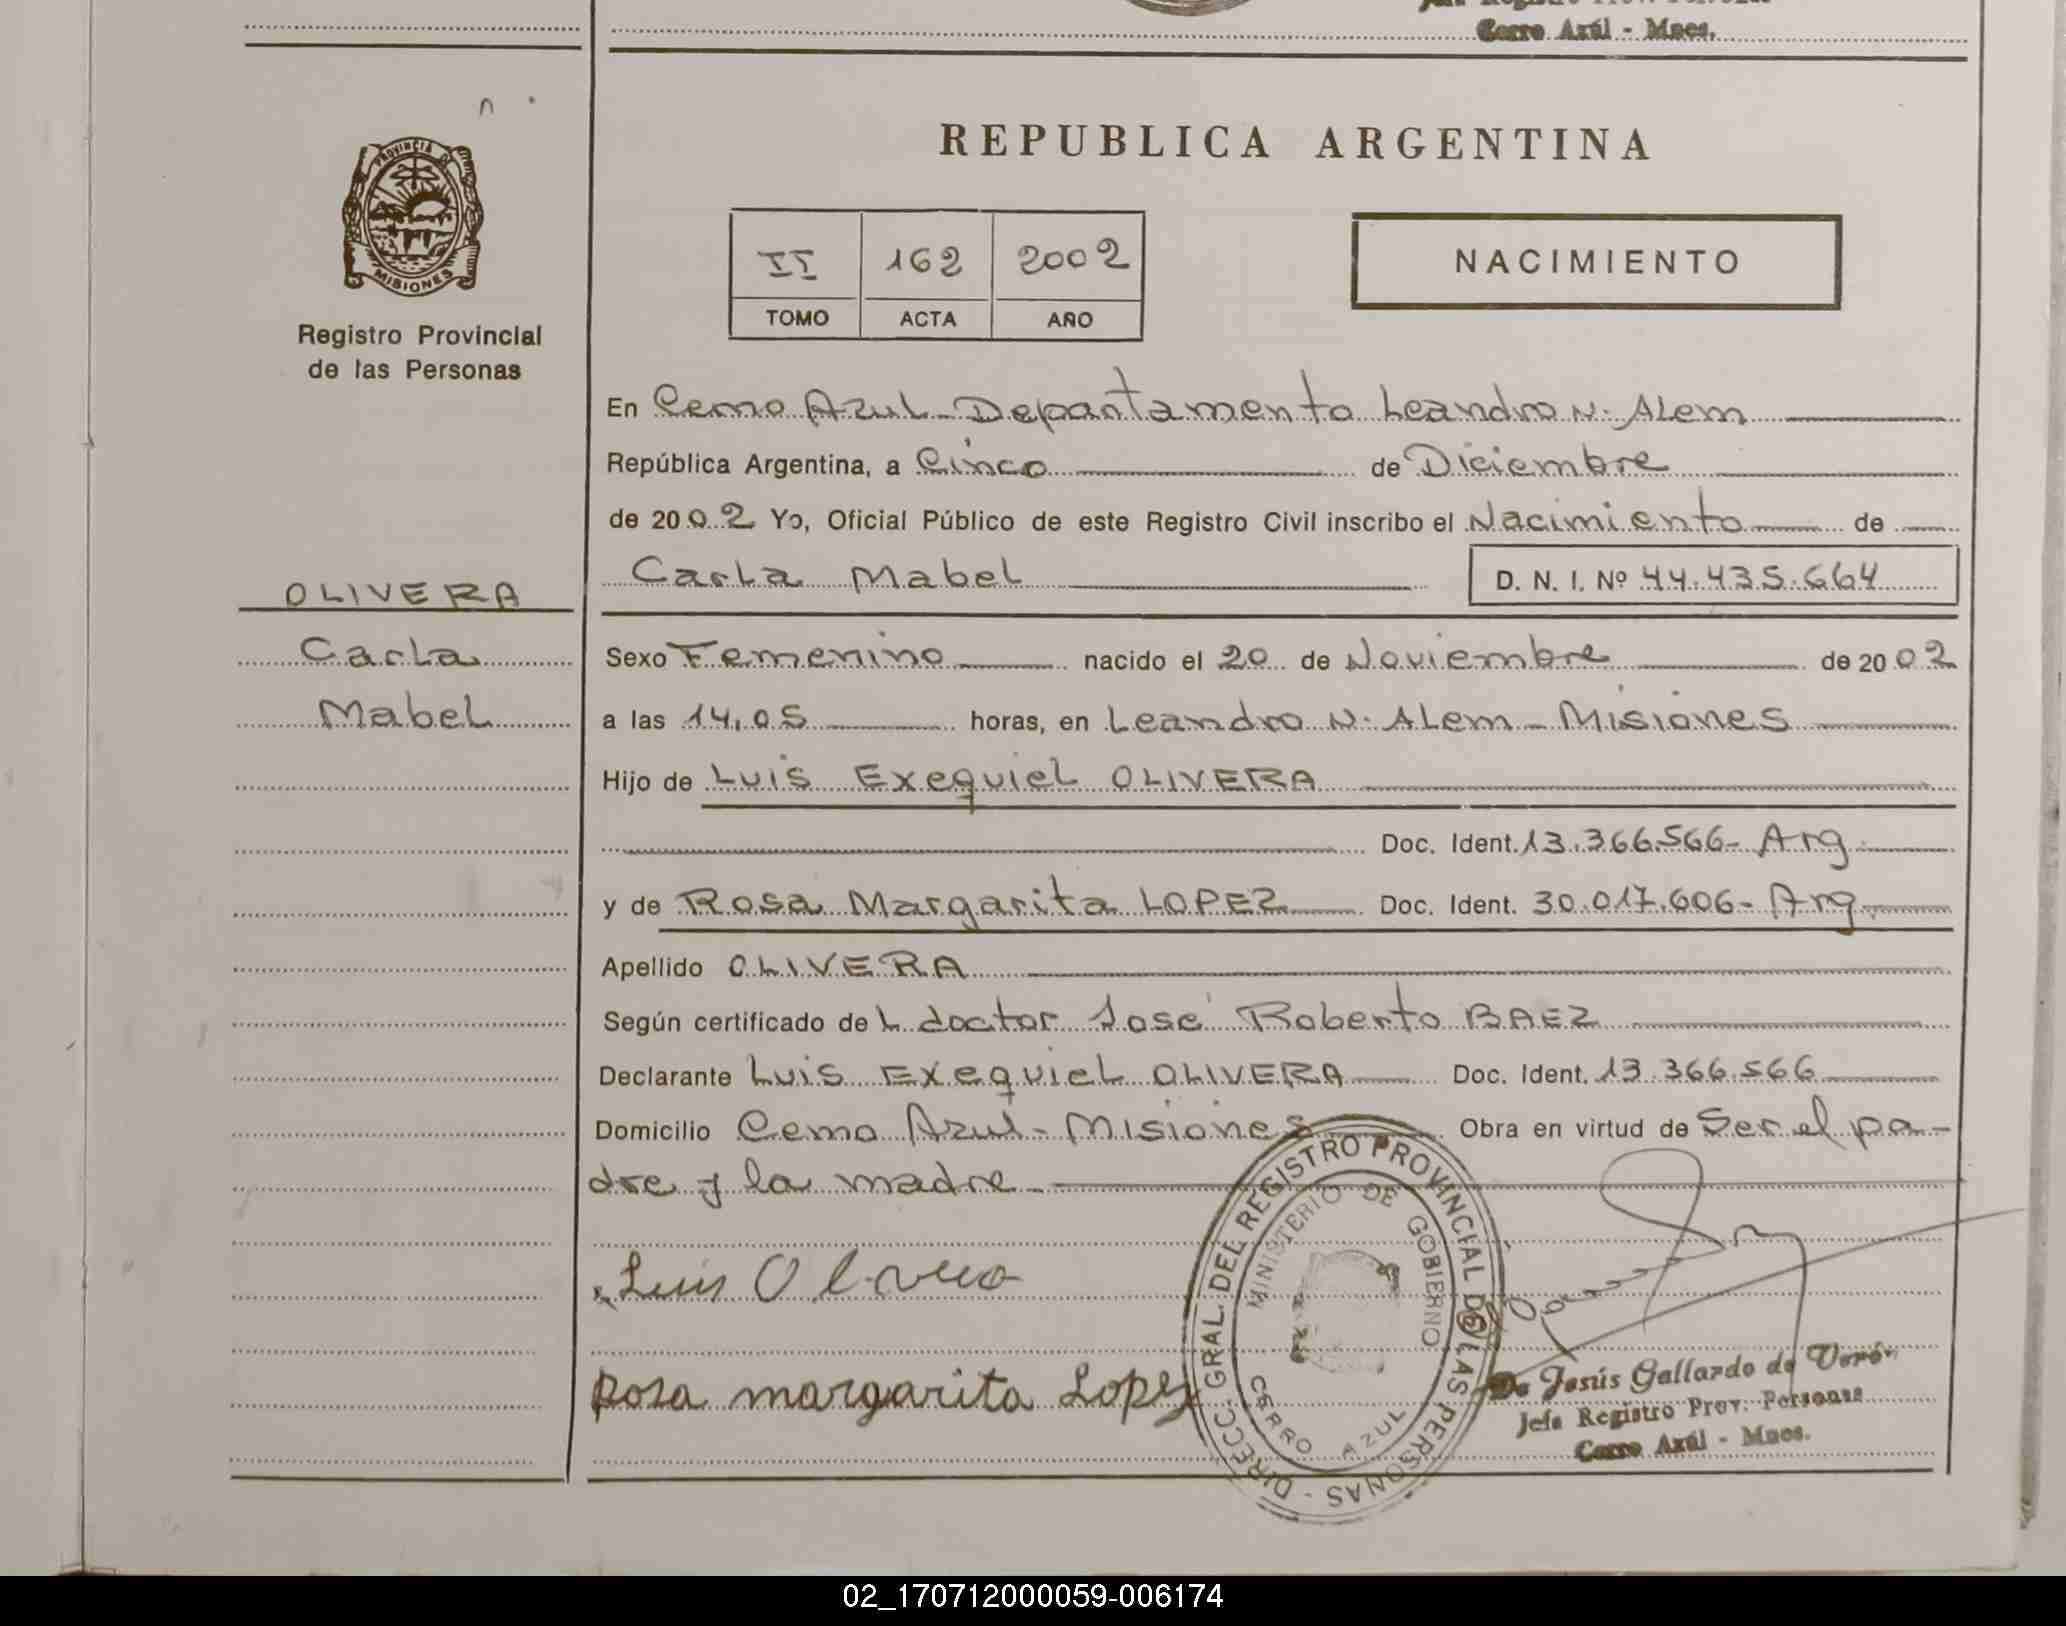 Cerro Azúl - Mnes.
REPUBLICA ARGENTINA
PROVINCIA DE
MISIONES
Registro Provincial
de las Personas
II 162 2002
TOMO ACTA AÑO
NACIMIENTO
En Cerro Azul - Departamento Leandro N. Alem
República Argentina, a Cinco de Diciembre
de 2002 Yo, Oficial Público de este Registro Civil inscribo el Nacimiento de
Carla Mabel D. N. I. Nº 44.435.664
OLIVERA
Carla
Mabel
Sexo Femenino nacido el 20 de Noviembre de 2002
a las 14,05 horas, en Leandro N. Alem - Misiones
Hijo de Luis Exequiel OLIVERA
Doc. Ident. 13.366.566- Arg
y de Rosa Margarita LOPEZ Doc. Ident. 30.017.606- Arg
Apellido OLIVERA
Según certificado del doctor José Roberto BAEZ
Declarante Luis Exequiel OLIVERA Doc. Ident. 13.366.566
Domicilio Cerro Azul - Misiones Obra en virtud de Ser el pa-
dre y la madre
Luis Olivera
Rosa margarita Lopez
DIRECC. GRAL. DEL REGISTRO PROVINCIAL DE LAS PERSONAS -
MINISTERIO DE GOBIERNO
CERRO AZUL
De Jesús Gallardo de
Jefa Registro Prov. Personas
Cerro Azúl - Mnes.
02_170712000059-006174